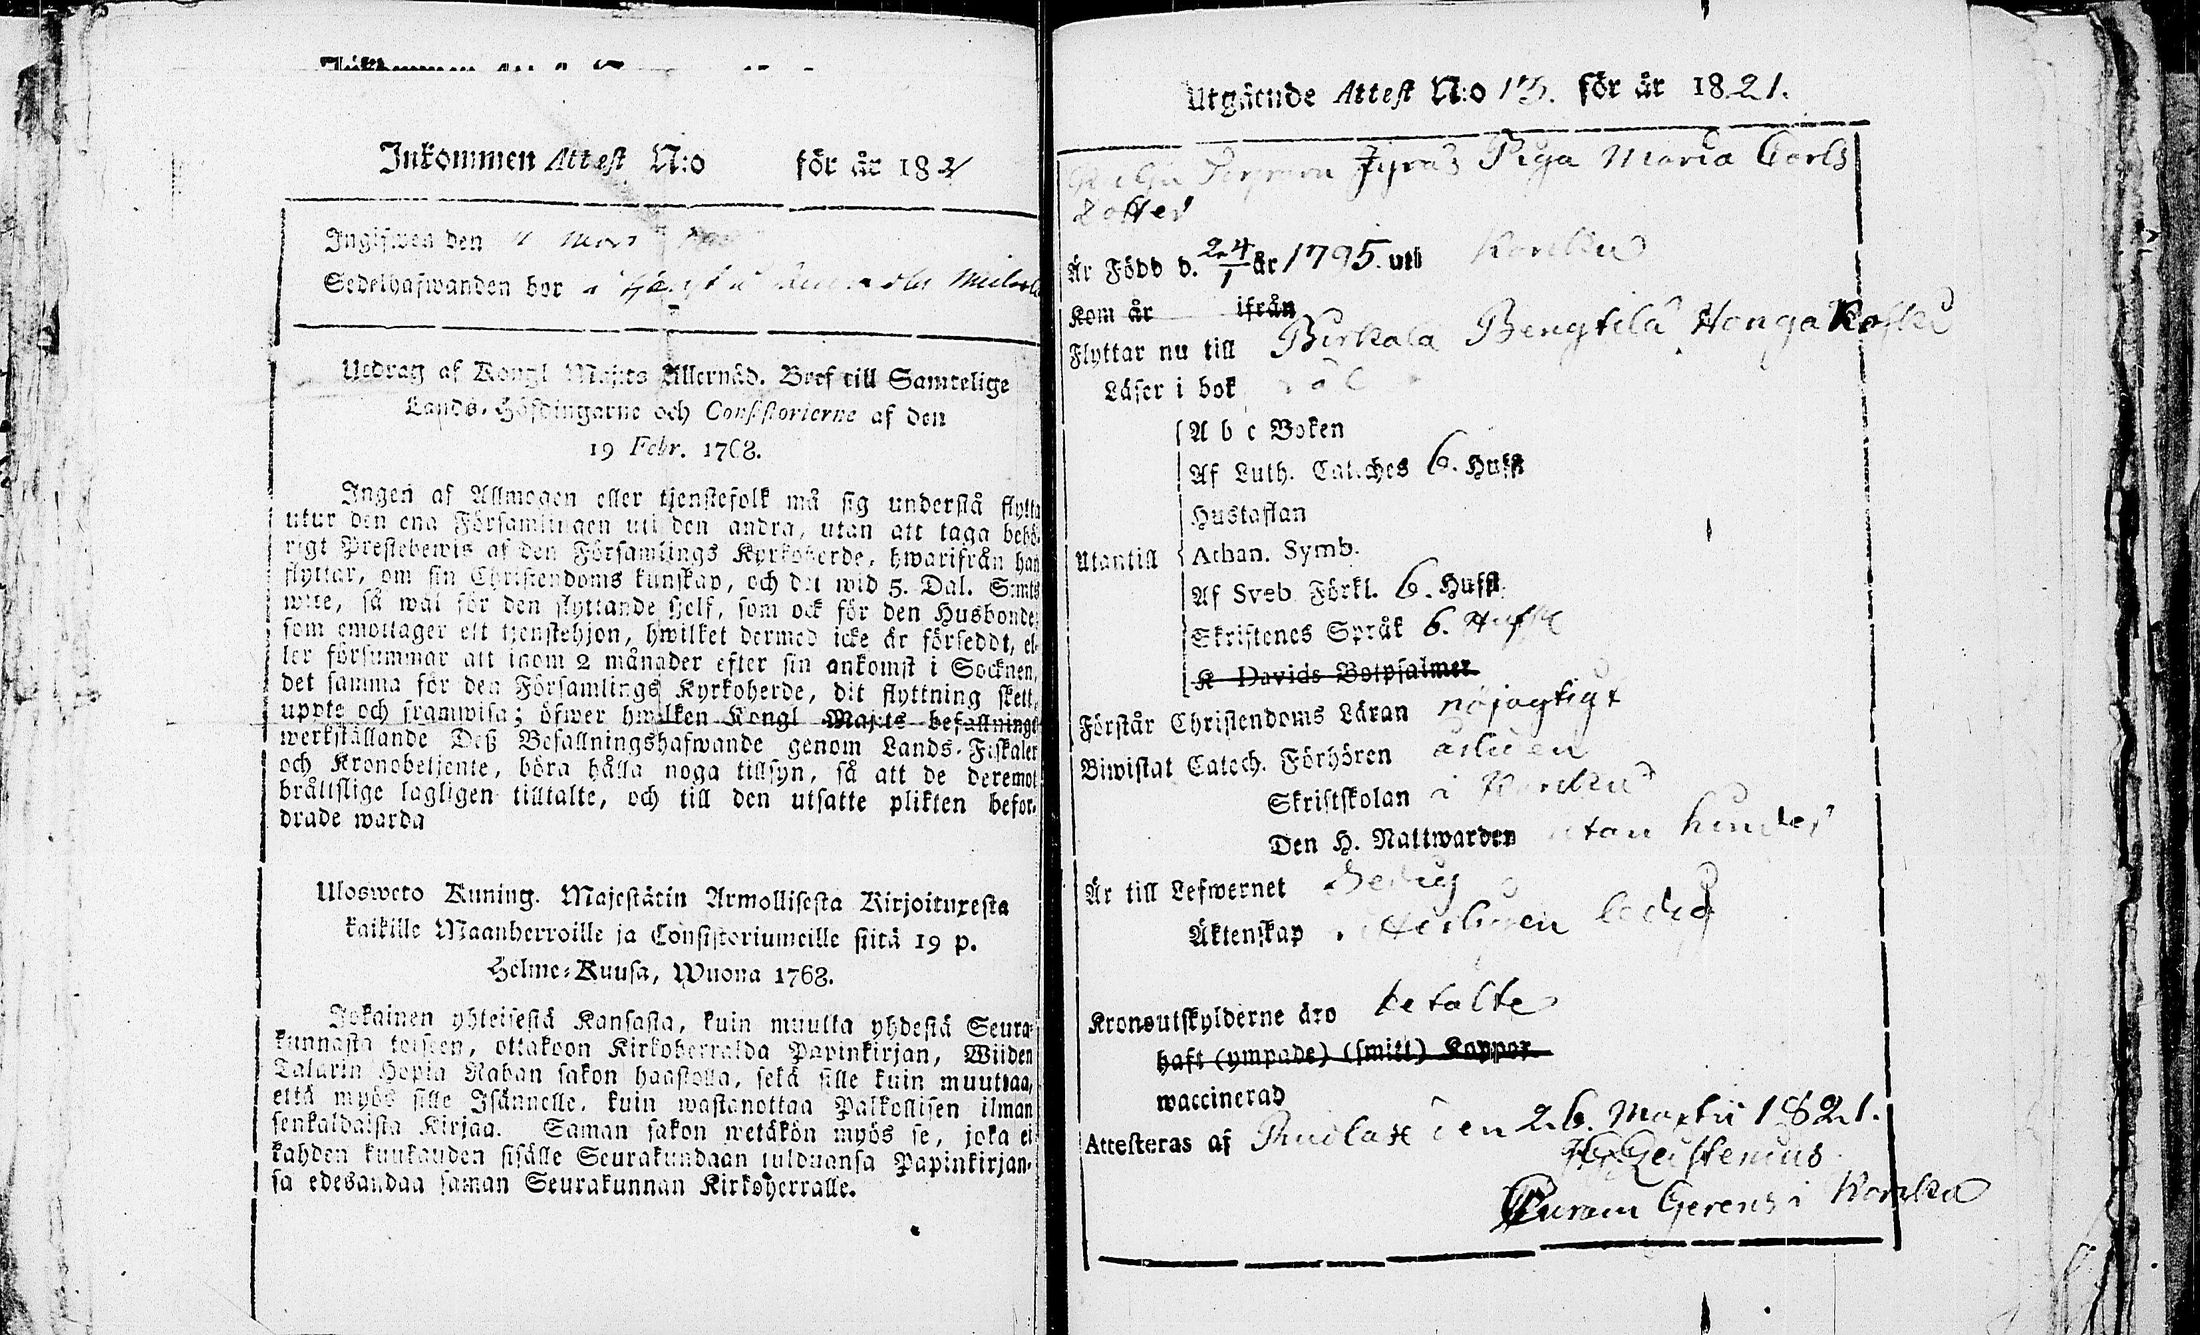 Inkommen Attest N:o för år 182
Ingifwen den
Sedelhafwanden bor
Utdrag af Kongl Maj:ts Allernåd. Bref till Samtelige
Lands-Höfdingarne och Consistorierne af den
19 Febr. 1768.
Ingen af Allmogen eller tjenstefolk må sig understå flytta
utur den ena Församlingen uti den andra, utan att taga behö-
rigt Prestebewis af den Församlings Kyrkoherde, hwarifrån han
flyttar, om sin Christendoms kunskap, och det wid 5. Dal. S:mts
wite, så wäl för den flyttande sjelf, som ock för den Husbonde,
som emottager ett tjenstehjon, hwilket dermed icke är förseddt, el-
ler försummar att inom 2 månader efter sin ankomst i Socknen,
det samma för den Församlings Kyrkoherde, dit flyttning skett,
uppte och framwisa; öfwer hwilken Kongl Maj:ts befallnings
werkställande Deß Befallningshafwande genom Lands-Fiskaler
och Kronobetjente, böra hålla noga tillsyn, så att de deremot
brältslige lagligen tilltalte, och till den utsatte plikten befor-
drade warda
Ulosweto Kuning. Majestätin Armollisesta Kirjoituxesta
kaikille Maanherroille ja Consistoriumeille siitä 19 p.
Helme-Kuusa, Wuona 1768.
Jokainen yhteisestä Kansasta, kuin muutta yhdestä Seura-
kunnasta toiseen, ottakoon Kirkoherralda Papinkirjan, Wiiden
Talarin Hopia Rahan sakon haastolla, sekä sille kuin muuttaa,
että myös sille Isännelle, kuin wastanottaa Palkollisen ilman
senkaldaista Kirjaa. Saman sakon wetäkön myös se, joka ei
kahden kuukauden sisälle Seurakundaan tulduansa Papinkirjan-
sa edesandaa saman Seurakunnan Kirkoherralle.
Utgående Attest N:o 13. för år 1821.
Jyräs Piga Maria Carls
dotter
Är Född d. 24/1 år 1795. uti Karkku
Kom år ifrån
Flyttar nu till Birkala Bengtilä Hongakoski
Läser i bok
A b c Boken
Af Luth. Catches 6. Hufst
Hustaflan
Utantill Athan. Symb.
Af Sveb Förkl. 6. Hufst.
Skriftenes Språk 6. Hufst
K Davids Botpsalmer
Förstår Christendoms Läran nöjagtigt
Biwistat Catech. Förhören årligen
Skriftskolan i Karkku
Den H. Nattwarden utan hinder
Är till Lefwernet Sedig
Äktenskap ledig
Kronoutskylderne äro betalte
haft (ympade) (smitt) Koppor
waccinerad
Attesteras af den 26. Martii 1821.
Curam Gerens i Karkku